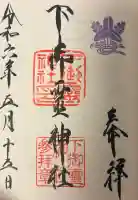 奉拝
下御霊神社
令和六年五月十五日
下御霊
参拝章